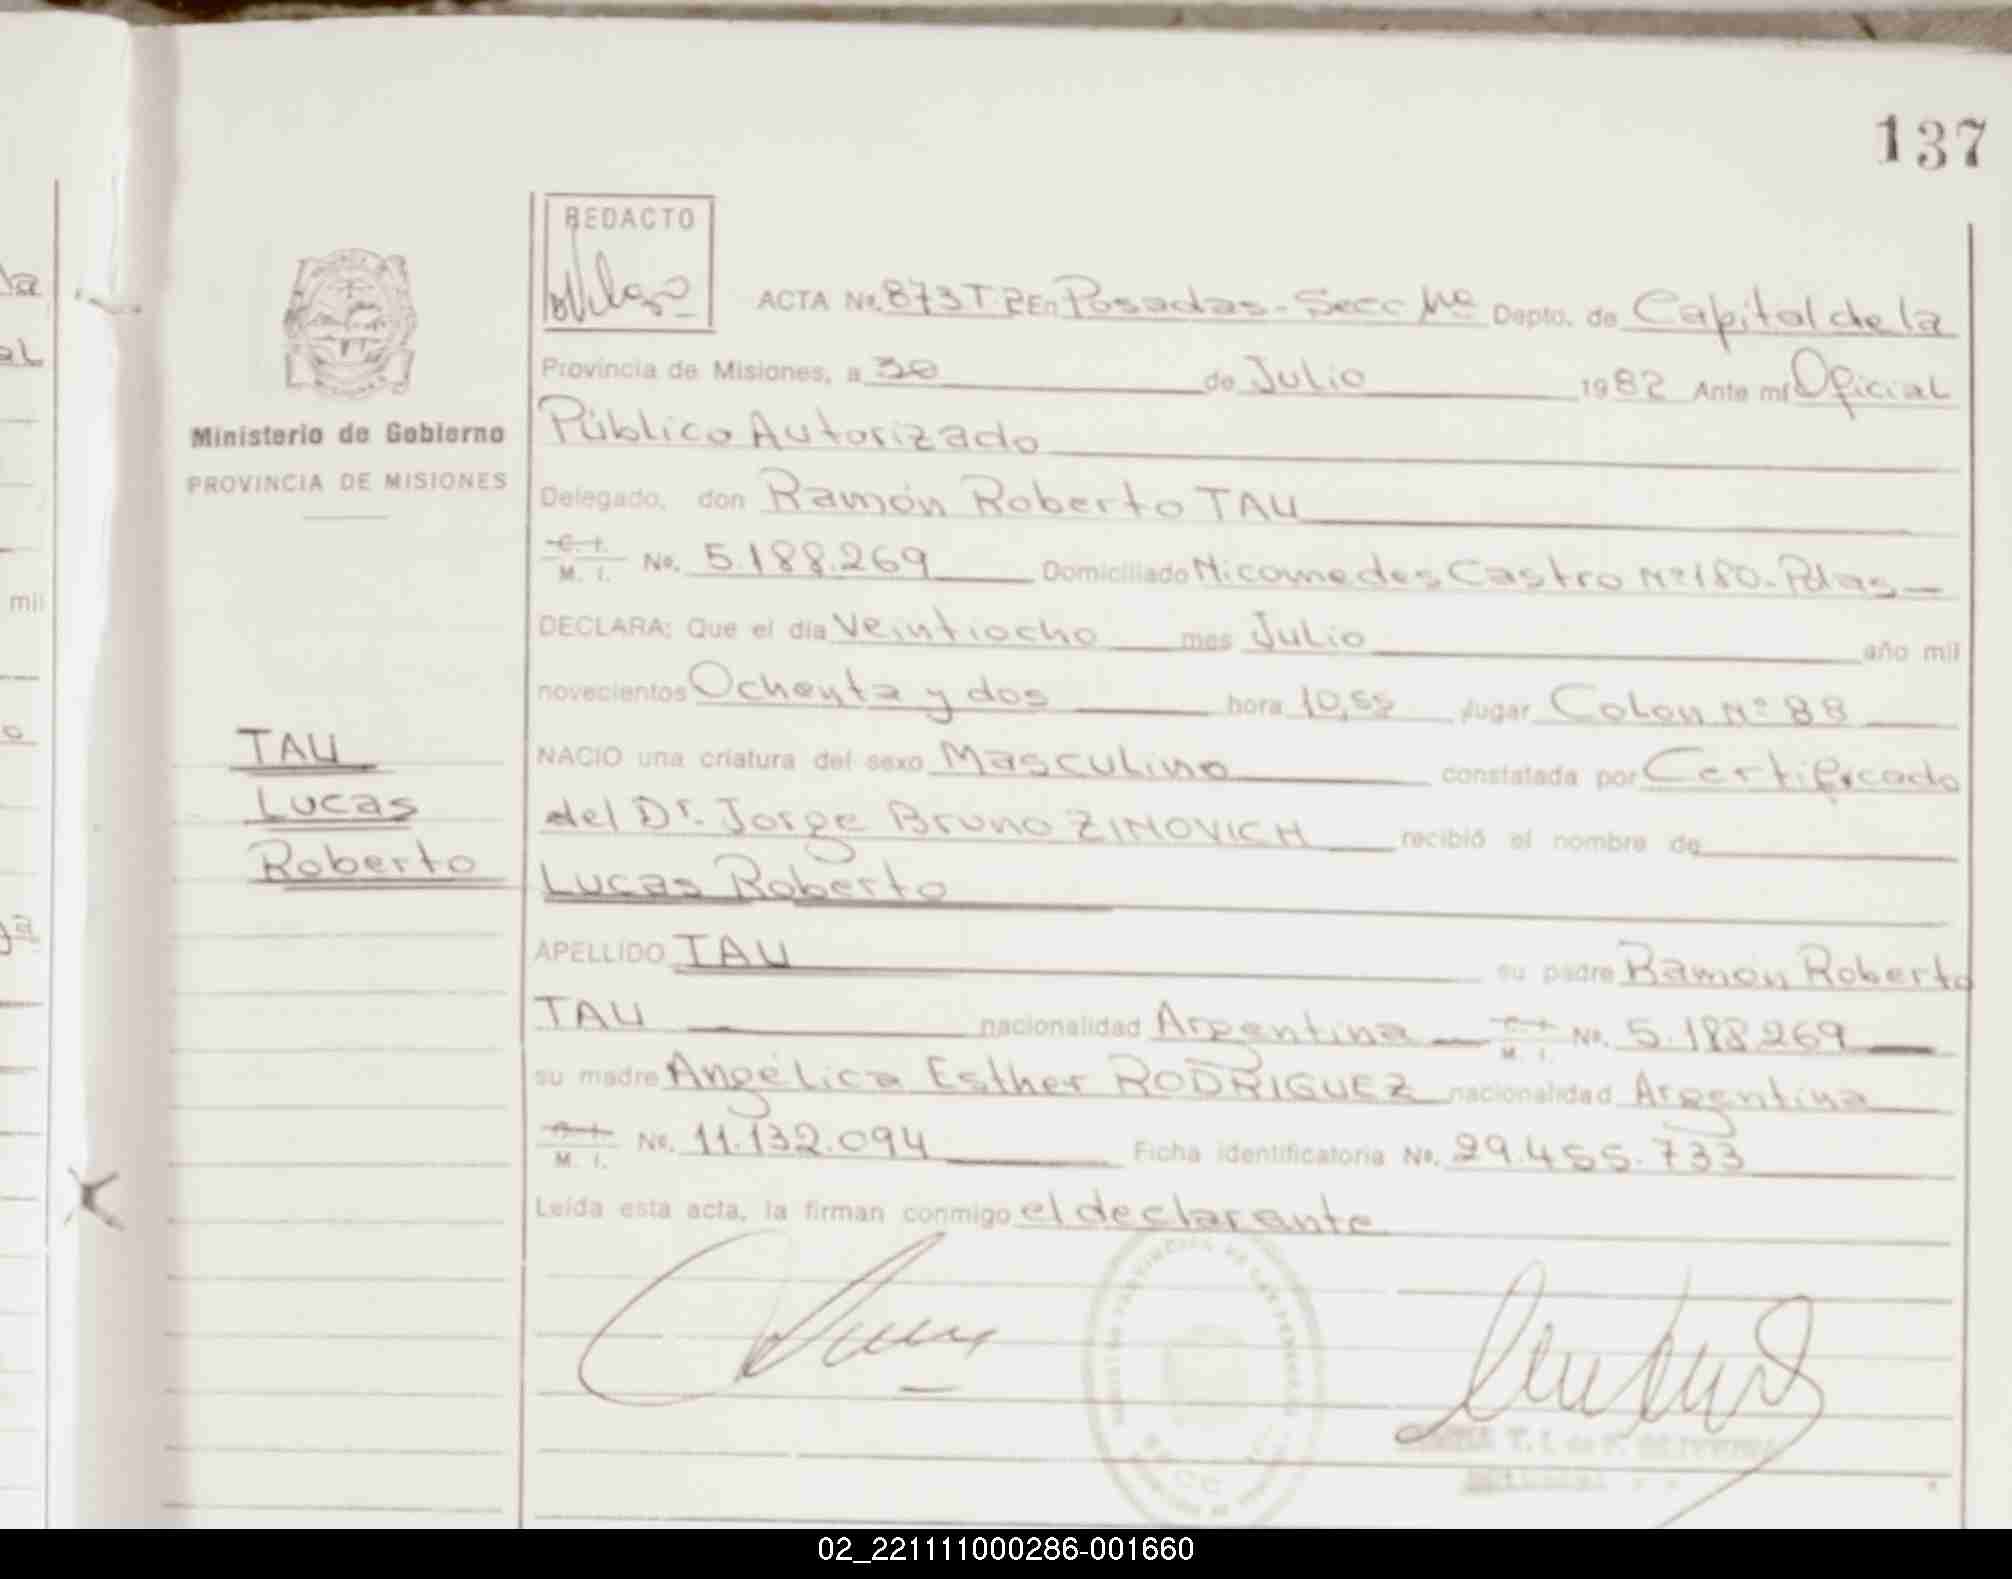 137
REDACTO
ACTA No. 873 T 2 En Posadas - Secc Depto. de Capital de la
Provincia de Misiones, a 30 de Julio 1982 Ante mí Oficial
Público Autorizado
Ministerio de Gobierno
PROVINCIA DE MISIONES
Delegado, don Ramón Roberto TAU
C. I.
M. I. No. 5.188.269 Domiciliado Nicomedes Castro Nº 180 - Pdas
DECLARA: Que el día Veintiocho mes Julio año mil
novecientos Ochenta y dos hora 10,55 lugar Colon Nº 88
NACIO una criatura del sexo Masculino constatada por Certificado
del Dr. Jorge Bruno ZINOVICH recibió el nombre de
Lucas Roberto
TAU
Lucas
Roberto
APELLIDO TAU su padre Ramón Roberto
TAU nacionalidad Argentina C. I.
M. I. No. 5.188.269
su madre Angélica Esther RODRIGUEZ nacionalidad Argentina
C. I.
M. I. No. 11.132.094 Ficha identificatoria No. 29.455.733
Leída esta acta, la firman conmigo el declarante
mil
02_221111000286-001660